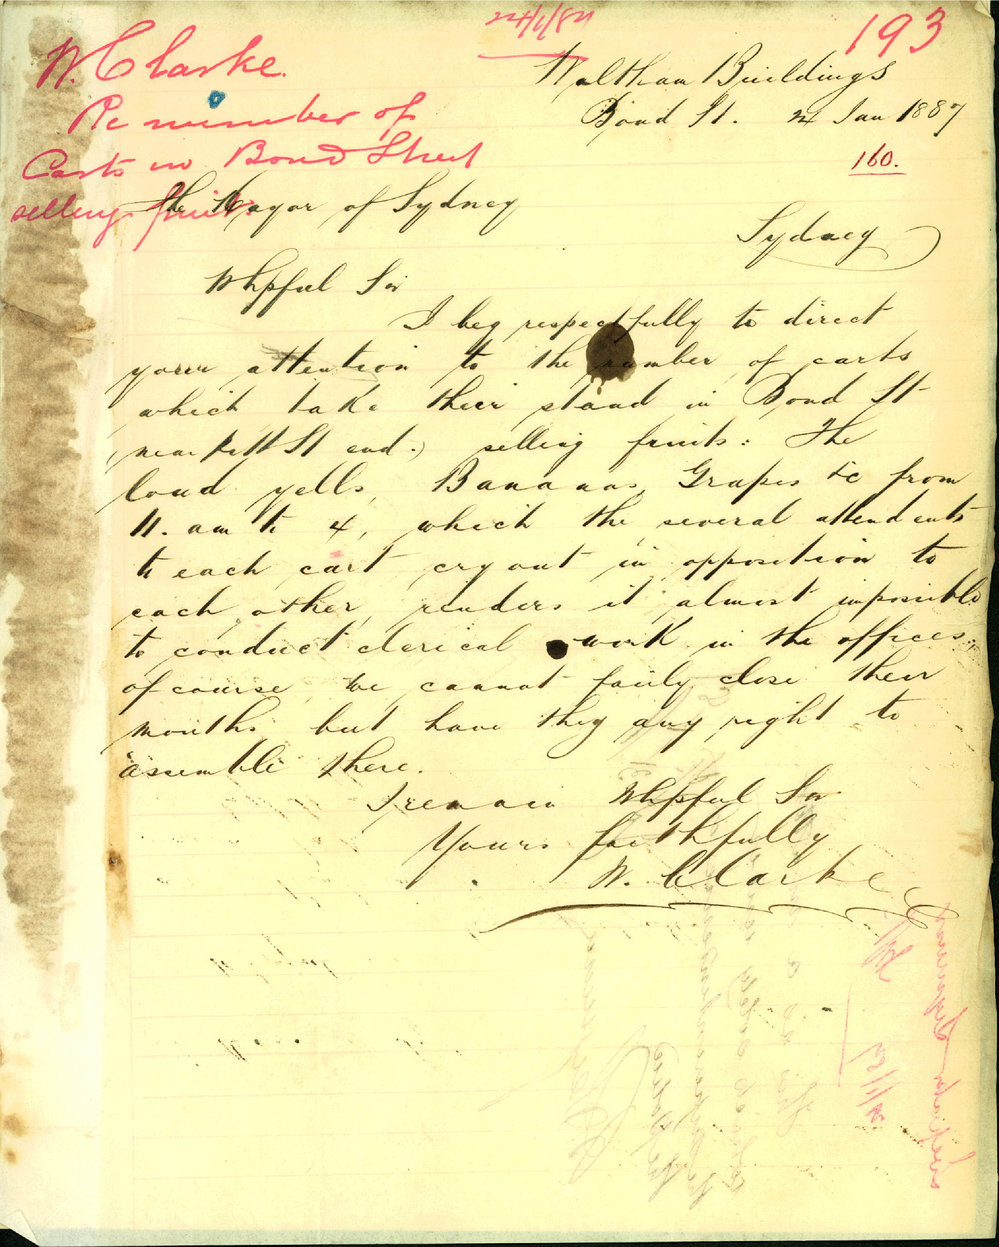 193
W. Clarke.
Re number of
Carts in Bond Street
selling fruit.
Waltham Buildings
Bond St. 24 Jan 1887
160.
The Mayor of Sydney
Sydney
Whpful Sir
I beg respectfully to direct
your attention to the number of carts
which take their stand in Bond St
(near Pitt St end.) selling fruits: The
loud yells, Bananas, Grapes &c from
11. am to 4, which the several attendents
to each cart cry out in opposition to
each other, renders it almost impossible
to conduct clerical work in the offices:
of course we cannot fairly close their
mouths but have they any right to
assemble there.
I remain Whpful Sir
Yours faithfully
W. Clarke